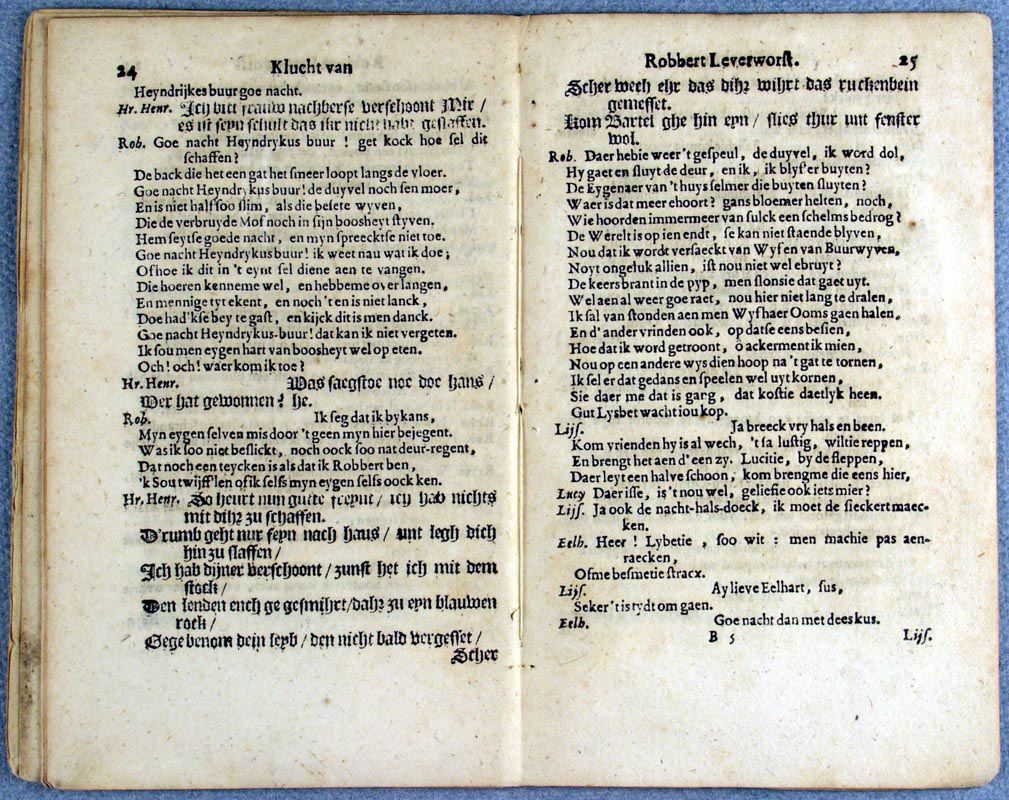 24 Klucht van
Heyndrijkes buur goe nacht.
Hr. Henr. Ich bitt frauw nachberse verschoont Mir /
es ist seyn schult das ihr nicht habt geslaffen.
Rob. Goe nacht Heyndrykus buur ! get kock hoe sel dit
schaffen ?
De back die het een gat het smeer loopt langs de vloer.
Goe nacht Heyndrykus buur! de duyvel noch sen moer,
En is niet half soo slim, als die besete wyven,
Die de verbruyde Mof noch in sijn boosheyt styven.
Hem seytse goede nacht, en myn spreecktse niet toe.
Goe nacht Heyndrykus buur! ik weet nau wat ik doe;
Of hoe ik dit in 't eynt sel diene aen te vangen.
Die hoeren kenneme wel, en hebbeme over langen,
En mennige tyt ekent, en noch 't en is niet lanck,
Doe had'kse bey te gast, en kijck dit is men danck.
Goe nacht Heyndrykus-buur! dat kan ik niet vergeten.
Ik sou men eygen hart van boosheyt wel op eten.
Och! och! waer kom ik toe?
Hr. Henr. Was saegstoe noe doe hans /
Wer hat gewonnen? he.
Rob. Ik seg dat ik bykans,
Myn eygen selven mis door 't geen myn hier bejegent.
Was ik soo niet beslickt, noch oock soo nat deur-regent,
Dat noch een teycken is als dat ik Robbert ben,
'k Sou twijff'len of ik selfs myn eygen selfs oock ken.
Hr. Henr. So heurt nun gutte freynt / ich hab nichts
mit dihr zu schaffen.
D'rumb geht nur seyn nach haus / unt legh dich
hin zu slaffen /
Ich hab dijner verschoont / zunst het ich mit dem
stock /
Den lenden ench ge gesmihrt / dahr zu eyn blauwen
rock /
Gege benom dein leyb / den nicht bald vergesset /
Scher
Robbert Leverworst. 25
Scher wech ehr das dihr wihrt das ruckenbein
gemesset.
Kom Bartel ghe hin eyn / slies thur unt fenster
wol.
Rob. Daer hebie weer 't gespeul, de duyvel, ik word dol,
Hy gaet en sluyt de deur, en ik, ik blyf er buyten?
De Eygenaer van 't huys selmer die buyten sluyten?
Waer is dat meer ehoort? gans bloemer helten, noch,
Wie hoorden immermeer van sulck een schelms bedrog?
De Werelt is op ien endt, se kan niet staende blyven,
Nou dat ik wordt versaeckt van Wyfen van Buurwyven,
Noyt ongeluk allien, ist nou niet wel ebruyt?
De keers brant in de pyp, men slonsie dat gaet uyt.
Wel aen al weer goe raet, nou hier niet lang te dralen,
Ik sal van stonden aen men Wyf haer Ooms gaen halen,
En d'ander vrinden ook, op datse eens besien,
Hoe dat ik word getroont, ô ackerment ik mien,
Nou op een andere wys dien hoop na 't gat te tornen,
Ik sel er dat gedans en speelen wel uyt kornen,
Sie daer me dat is garg, dat kostie daetlyk heen.
Gut Lysbet wacht iou kop.
Lijs. Ja breeck vry hals en been.
Kom vrienden hy is al wech, 't sa lustig, wiltie reppen,
En brengt het aen d'een zy. Lucitie, by de sleppen,
Daer leyt een halve schoon, kom brengme die eens hier,
Lucy Daer isse, is 't nou wel, geliefie ook iets mier?
Lijs. Ja ook de nacht-hals-doeck, ik moet de sieckert maec-
ken.
Eelh. Heer! Lybetie, soo wit: men machie pas aen-
raecken,
Ofme besmetie stracx.
Lijs. Ay lieve Eelhart, sus,
Seker 't is tydt om gaen.
Eelh. Goe nacht dan met dees kus.
B 5 Lijs.